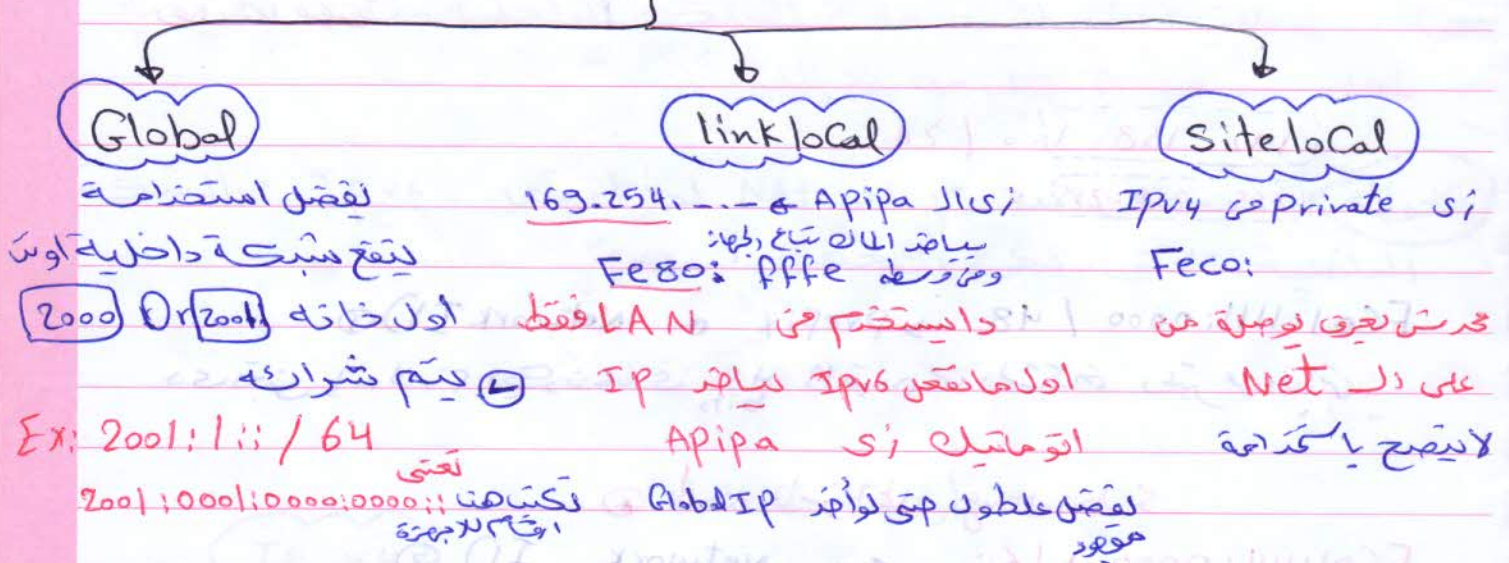 Global
يفضل استخدامة
ينفع شبكة داخلية اون
2000 Or 2001 اول خانه
يتم شرائه
Ex: 2001:1:: / 64
تعنى
2001:0001:0000:0000:: تكتب هنا
ارقام للاجهزة
link local
زى ال Apipa 169.254.-.-
بياخد الماك بتاع الجهاز
Fe80: fffe وفى وسطه
دا يستخدم فى LAN فقط
اول ما تفعل IPv6 بياخد IP
اتوماتيك زى Apipa
يفضل علطول حتى لو أخد Global IP
موجود
Site local
زى Private فى IPv4
Feco:
محدش يعرف يوصلة من
على ال Net
لا ينصح باستخدامة